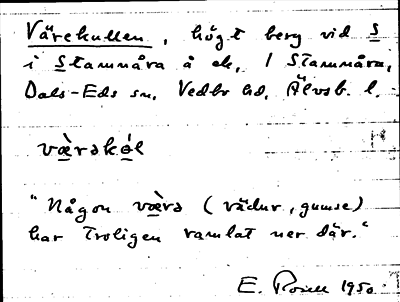 Värekullen, högt berg vid S
i Stommåra å ek, / Stommåra,
Dals-Eds sn, Vedbo hd, Älvsb. l.
værəkəl
"Någon værə (vädur, gumse)
har troligen ramlat ner där."
E. 1950.